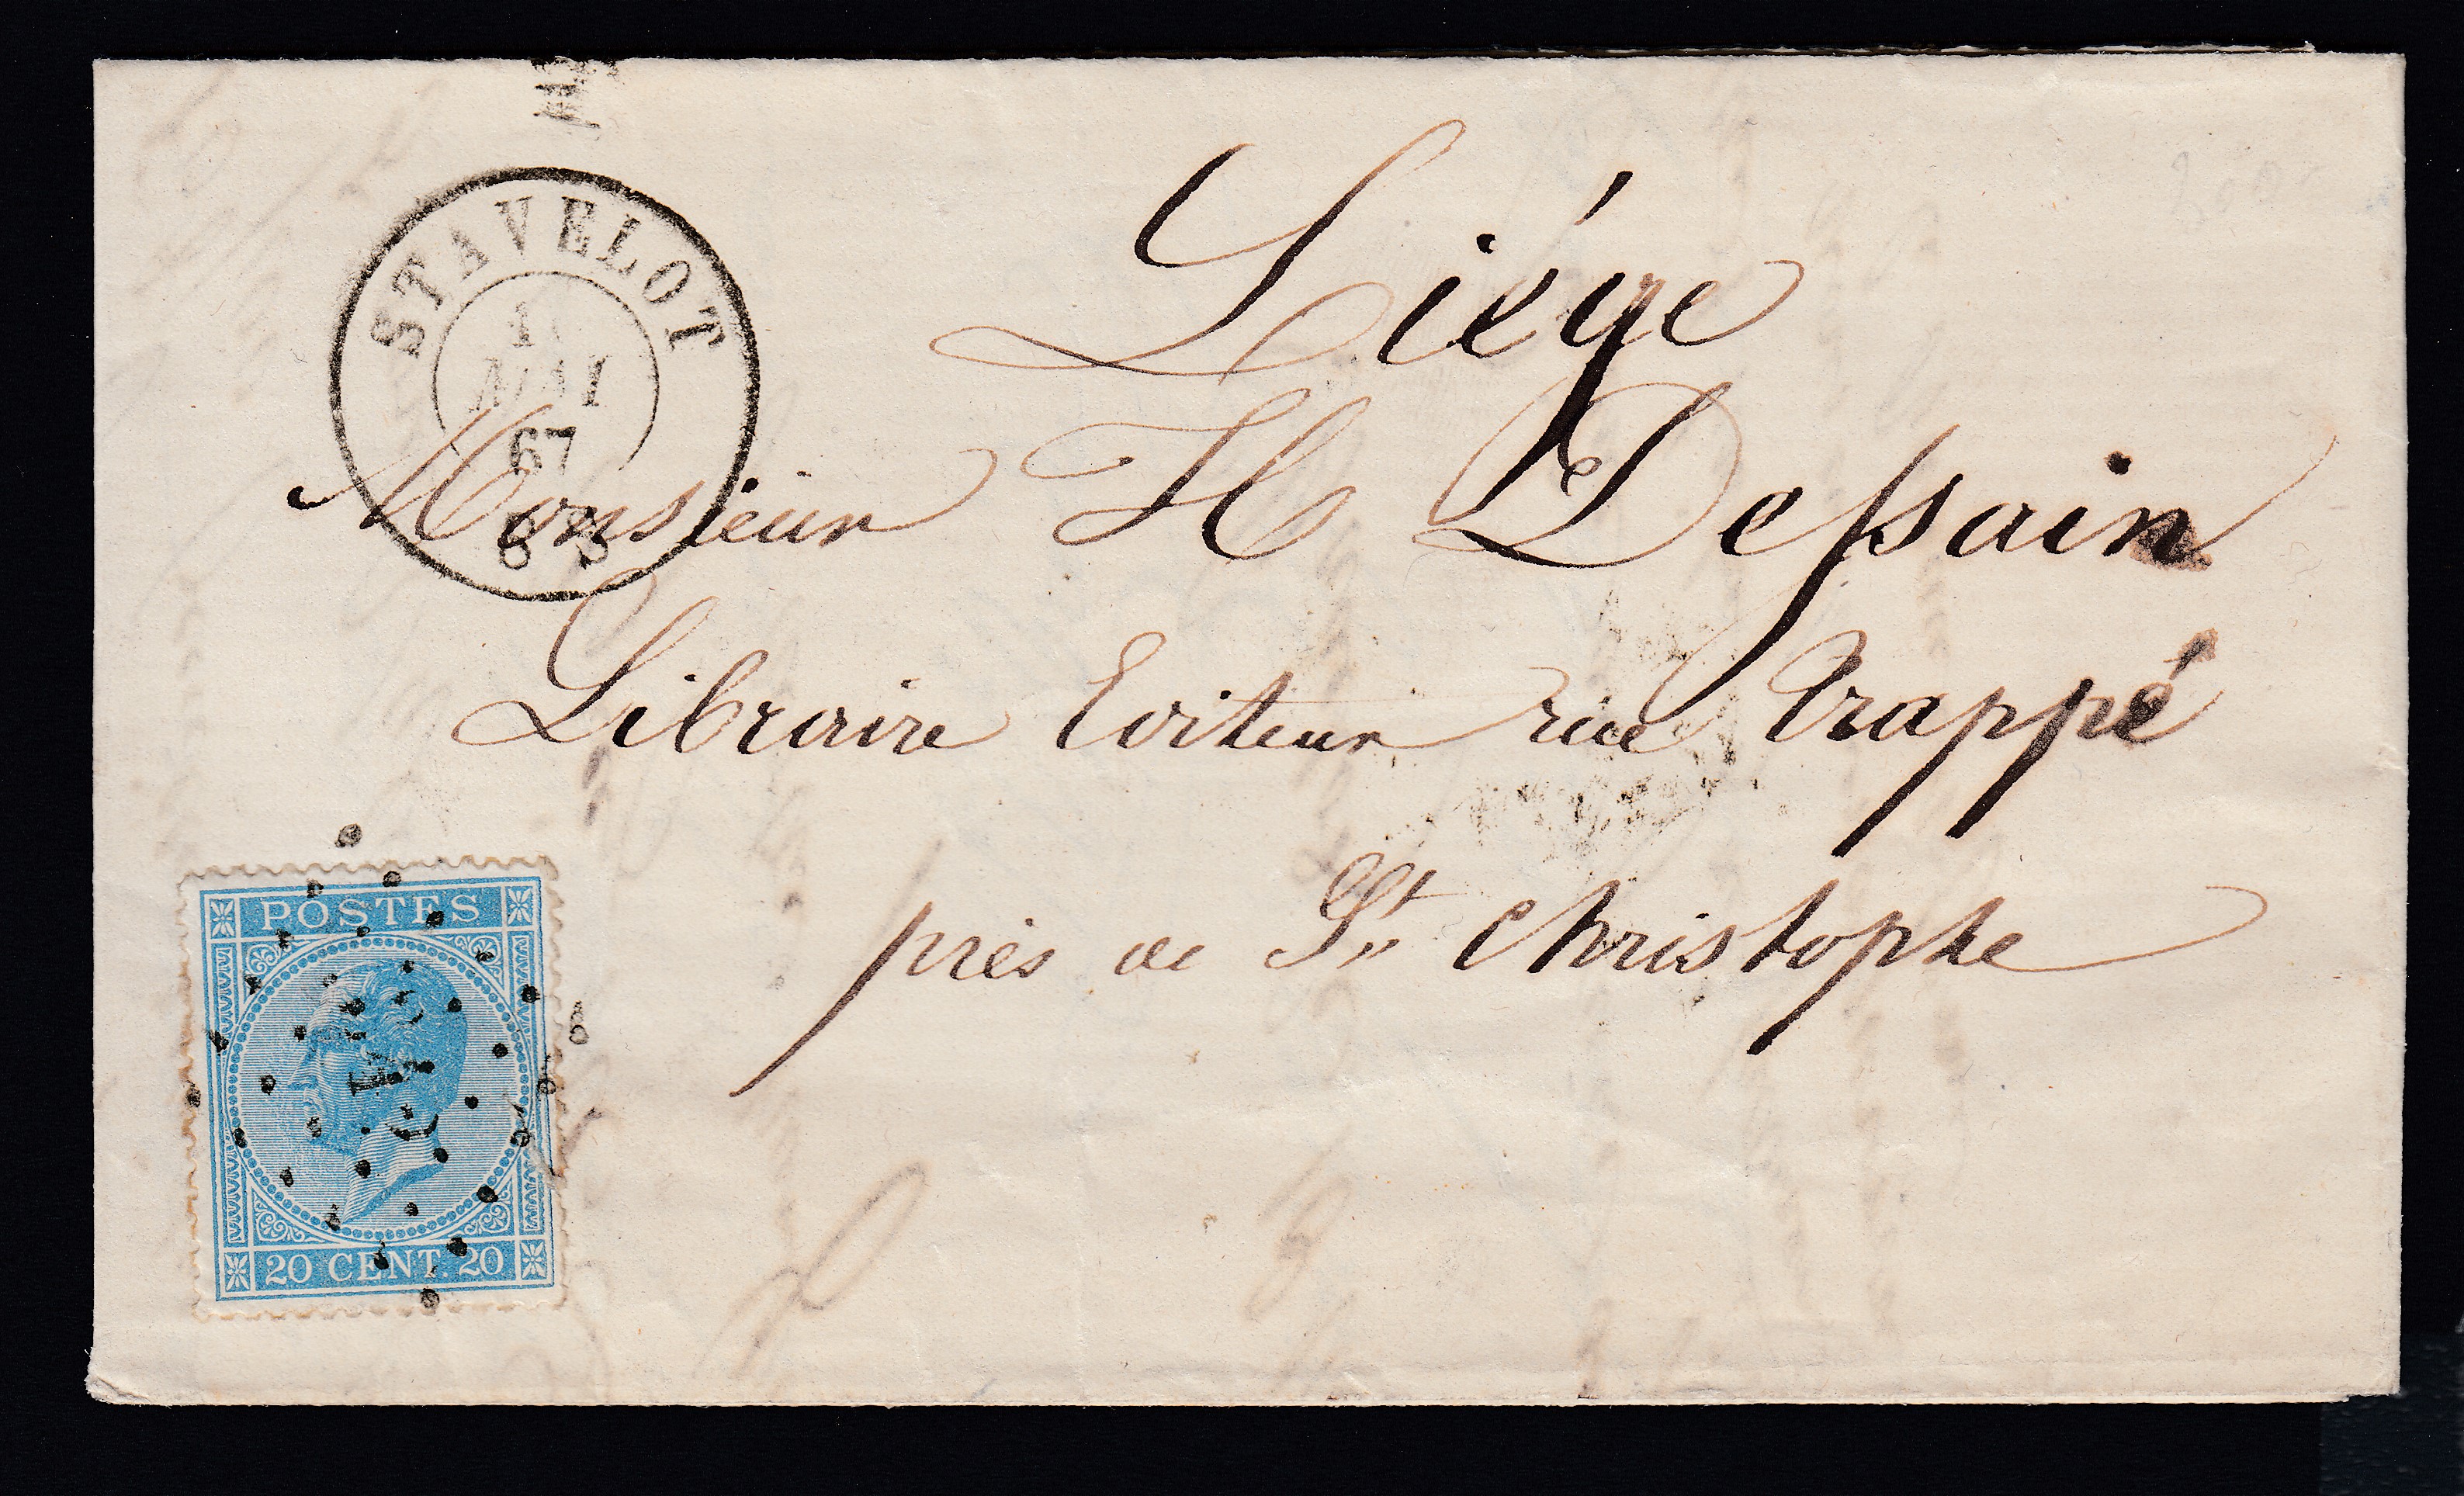 STAVELOT
MAI
67
Liége
Monsieur H Dessain
Libraire Editeur rue Trappé
près de St Christophe
POSTES
20 CENT. 20